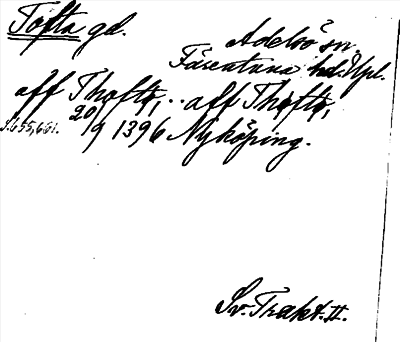 Tofta gd.
Adelsö sn.
Färentuna hd. Upl.
aff Thofta, .. aff Thofta,
20/9 1396 Nyköping.
s. 655, 661.
Sv. Trakt. II.